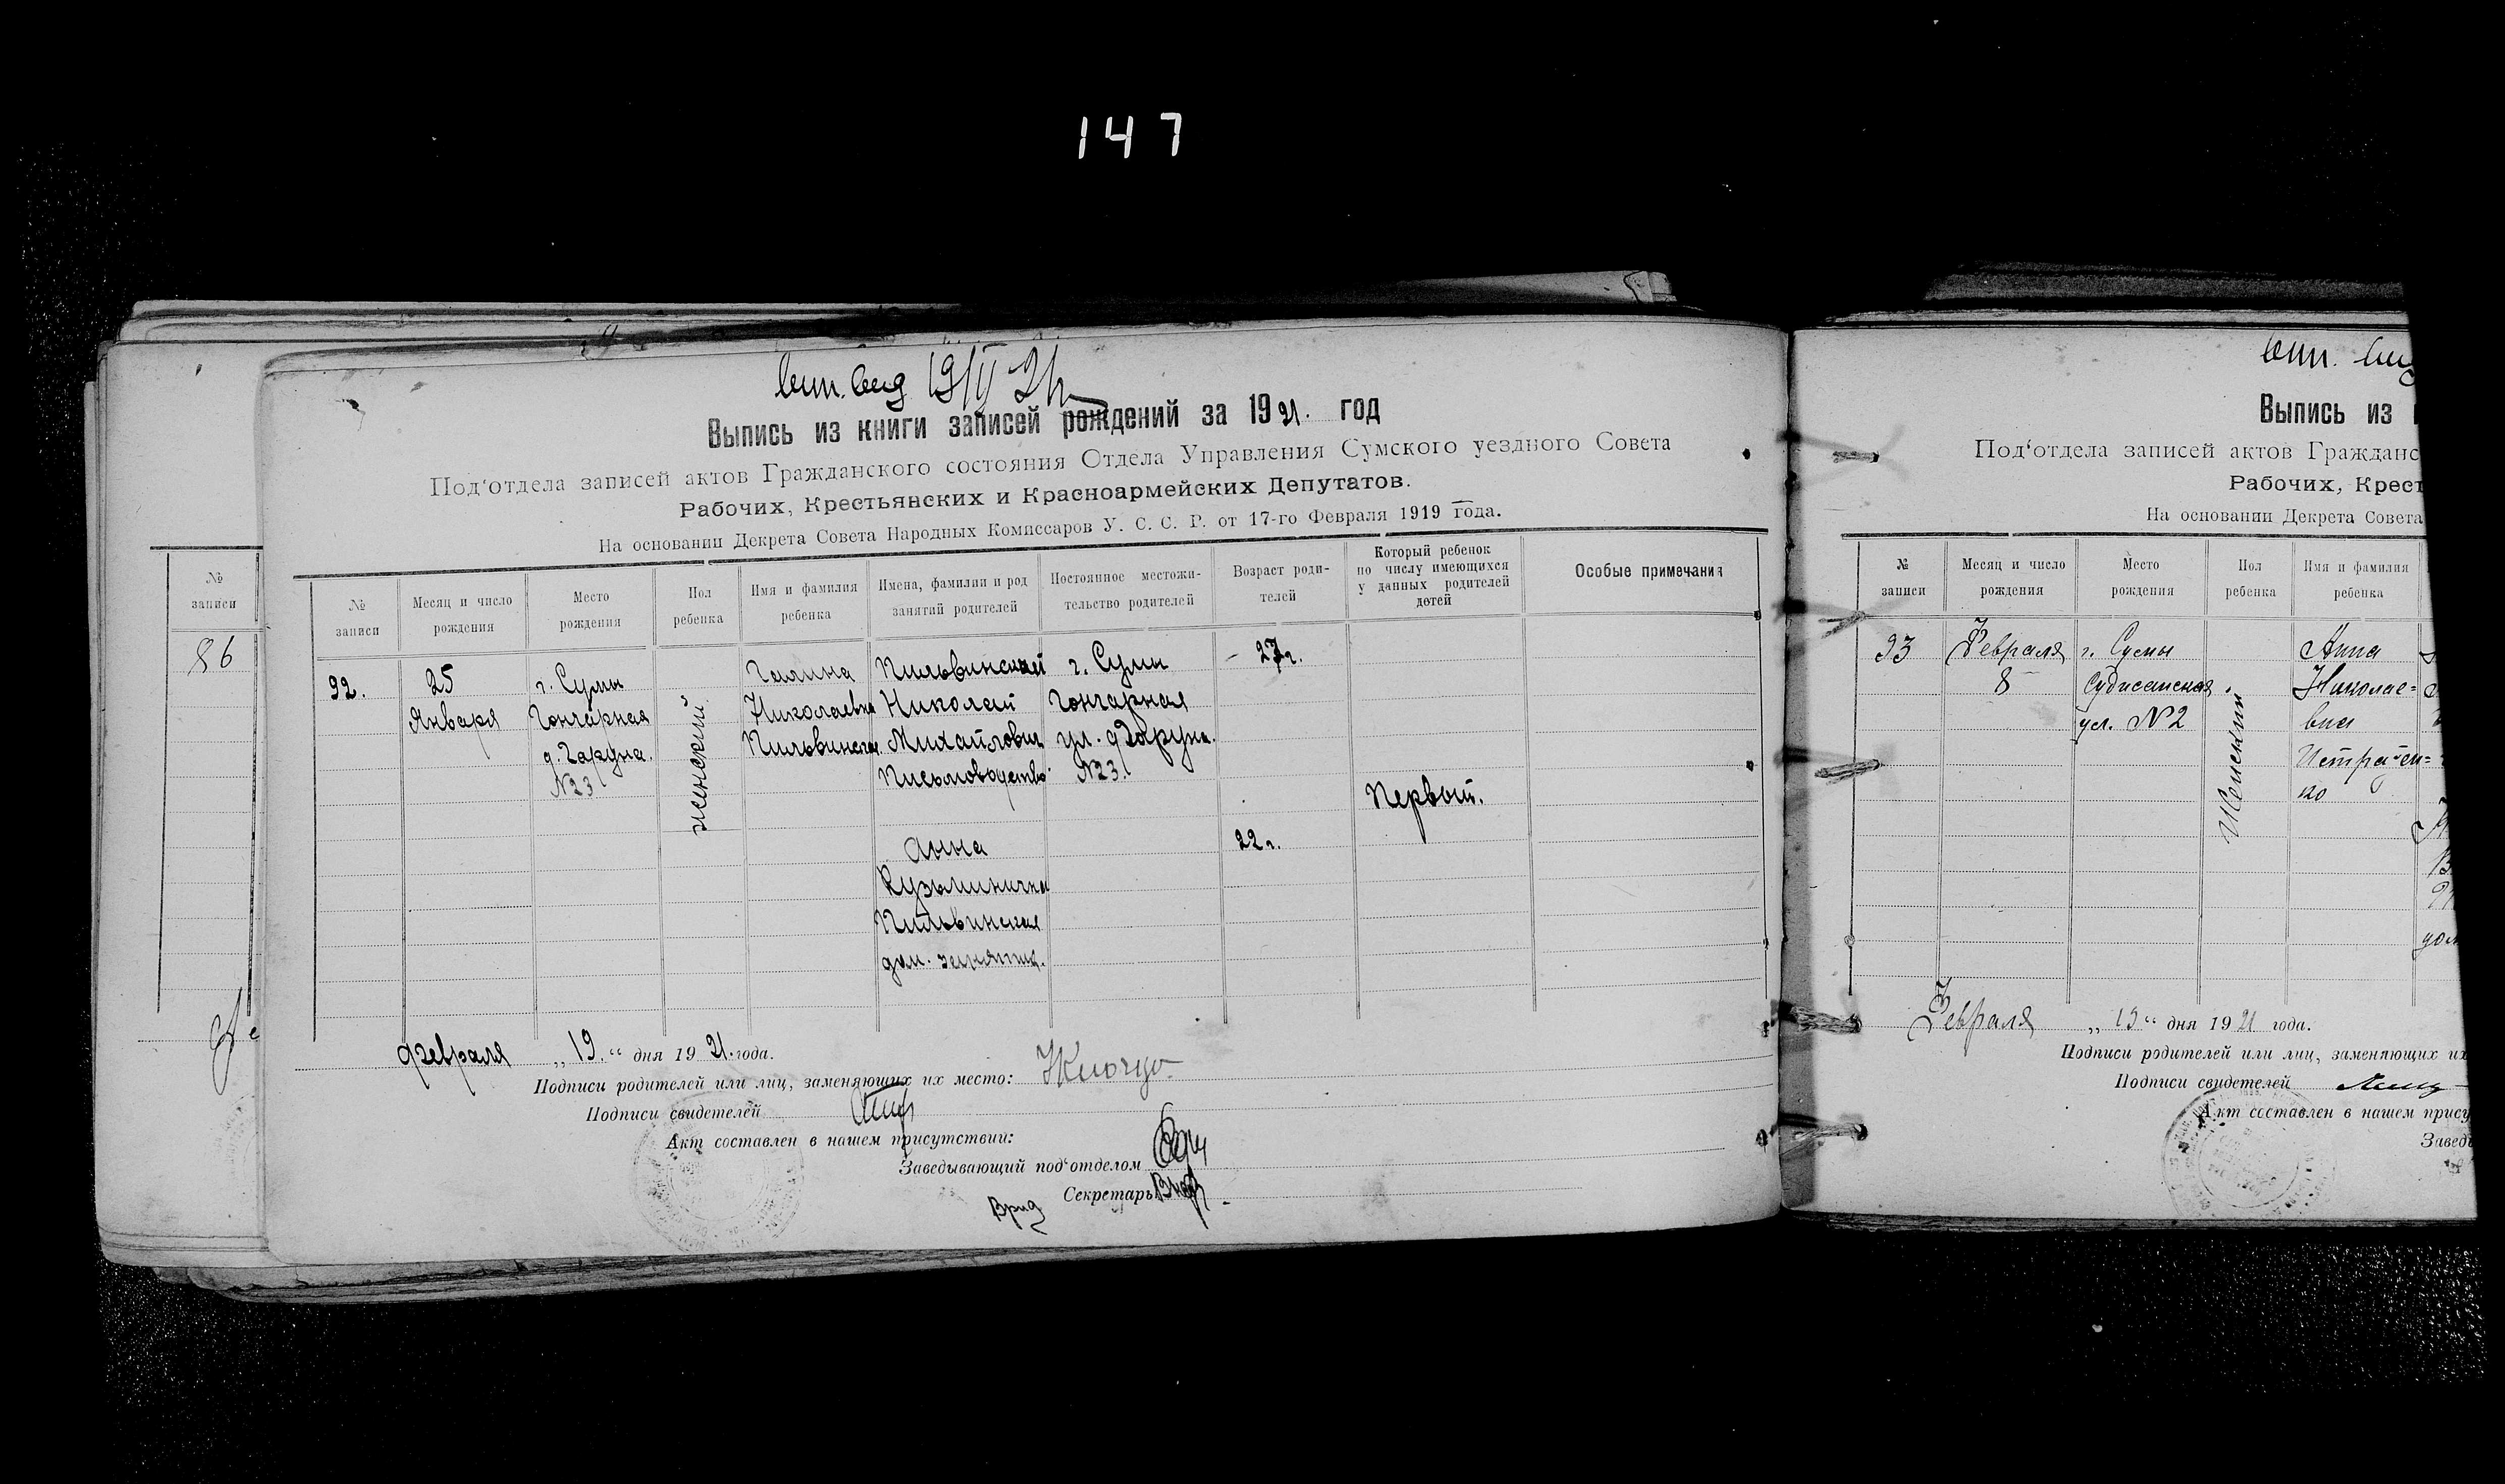 147
19/II 21
Выпись из книги записей рождений за 1921. год
Под'отдела записей актов Гражданского состояния Отдела Управления Сумского уездного Совета
Рабочих, Крестьянских и Красноармейских Депутатов.
На основании Декрета Совета Народных Комиссаров У. С. С. Р. от 17-го Февраля 1919 года.
№ записи
86
№ записи
Месяц и число рождения
Место рождения
Пол ребенка
Имя и фамилия ребенка
Имена, фамилии и род занятий родителей
Постоянное местожительство родителей
Возраст родителей
Который ребенок по числу имеющихся у данных родителей детей
Особые примечания
92.
25
Января
г. Сумы
Гончарная
д. Гаруна.
№23
женский
Галина
Николаевна
Пильвинская
Пильвинский
Николай
Михайлович
Письмоводство
г. Сумы
Гончарная
ул. д. Гаруна.
№23.
27 г.
Первый.
Анна
Кузьминична
Пильвинская
дом. занятия.
22 г.
февраля „19.“ дня 1921. года.
Подписи родителей или лиц, заменяющих их место:
Подписи свидетелей
Акт составлен в нашем присутствий:
Заведывающий под'отделом
Врид Секретарь
Выпись из
Под'отдела записей актов Гражданс
Рабочих, Крест
На основании Декрета Совета
№ записи
Месяц и число рождения
Место рождения
Пол ребенка
Имя и фамилия ребенка
93
Февраля
8
г. Сумы
ул. №2
Женский
Анна
Николае=
вна
ко
Февраля „13“ дня 1921 года.
Подписи родителей или лиц, заменяющих их
Подписи свидетелей
Акт составлен в нашем прису
Завед